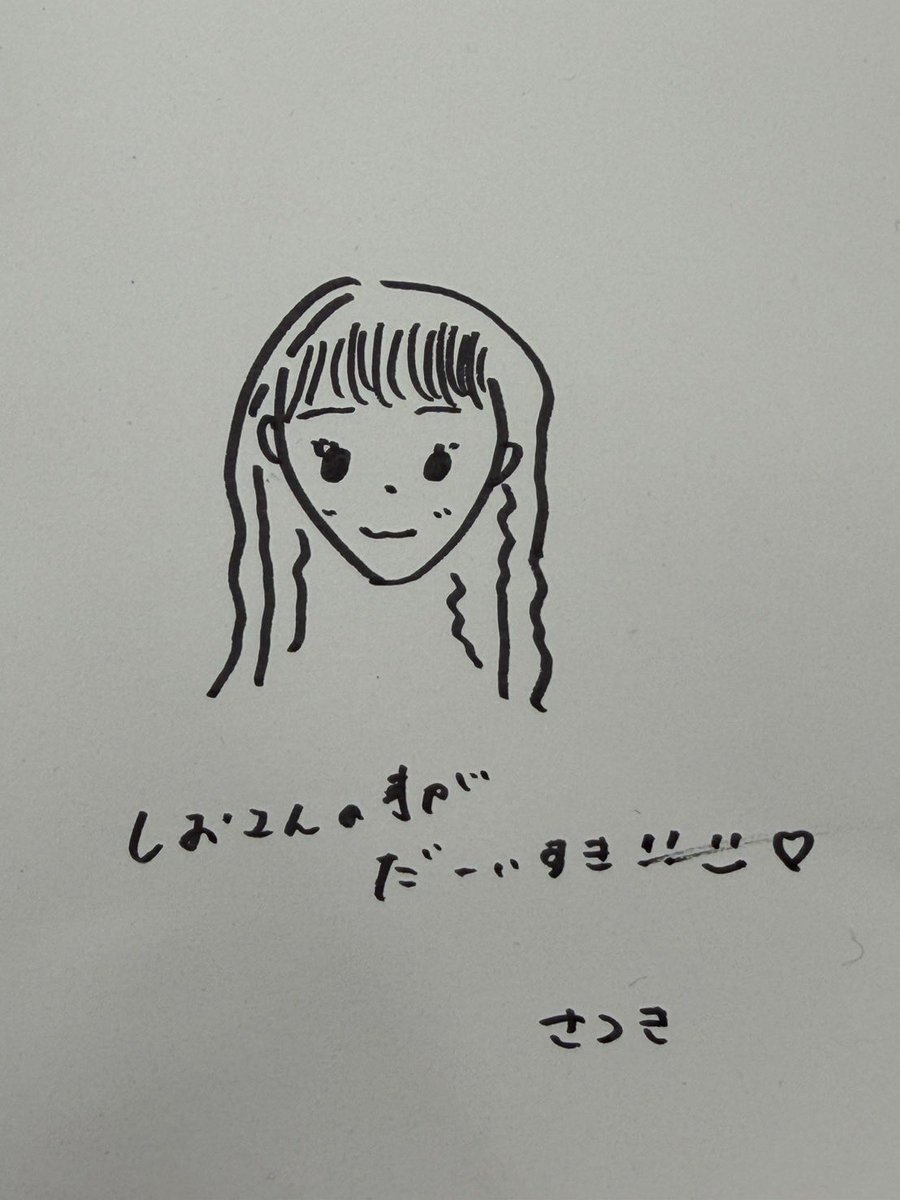 しおさんの事が
だーいすき♡
さつき